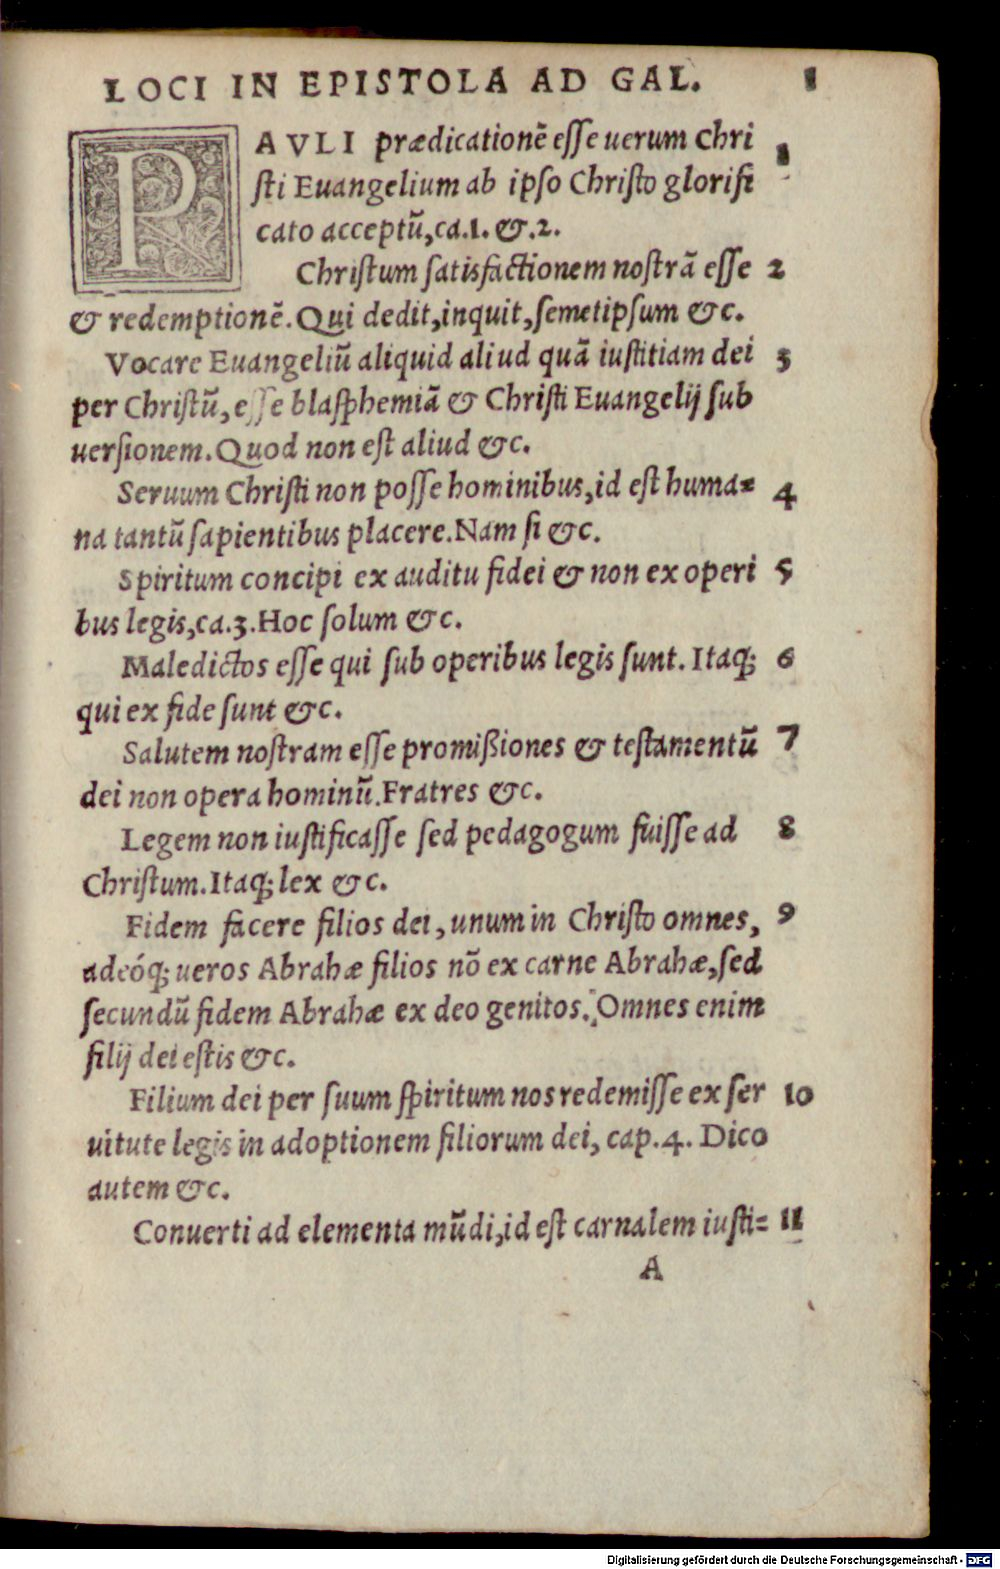 LOCI IN EPISTOLA AD GAL. 1
PAVLI prædicationē eſſe uerum Chri 1
ſti Euangelium ab ipſo Chriſto glorifi
cato acceptū, ca.1. &.2.
Chriſtum ſatisfactionem noſtrā eſſe 2
& redemptionē. Qui dedit, inquit, ſemetipſum &c.
Vocare Euangeliū aliquid aliud quā iuſtitiam dei 3
per Chriſtū, eſſe blaſphemiā & Chriſti Euangelij ſub
uerſionem. Quod non eſt aliud &c.
Seruum Chriſti non poſſe hominibus, id eſt huma= 4
na tantū ſapientibus placere. Nam ſi &c.
Spiritum concipi ex auditu fidei & non ex operi 5
bus legis, ca.3. Hoc ſolum &c.
Maledictos eſſe qui ſub operibus legis ſunt. Itaq; 6
qui ex fide ſunt &c.
Salutem noſtram eſſe promißiones & teſtamentū 7
dei non opera hominū. Fratres &c.
Legem non iuſtificaſſe ſed pedagogum fuiſſe ad 8
Chriſtum. Itaq; lex &c.
Fidem facere filios dei, unum in Chriſto omnes, 9
adeóq; ueros Abrahæ filios nō ex carne Abrahæ, ſed
ſecundū fidem Abrahæ ex deo genitos. Omnes enim
filij dei eſtis &c.
Filium dei per ſuum ſpiritum nos redemiſſe ex ſer 10
uitute legis in adoptionem filiorum dei, cap.4. Dico
autem &c.
Conuerti ad elementa mūdi, id eſt carnalem iuſti= 11
A
Digitalisierung gefördert durch die Deutsche Forschungsgemeinschaft - DFG